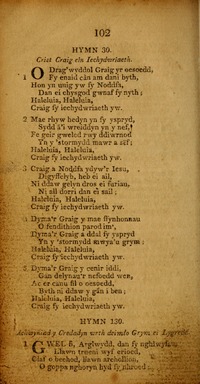 102
HYMN 30.
Crist Craig ein Iechydwriaeth.
1 O Drag'wyddol Graig yr oesoedd,
Fy enaid cân am dani byth,
Hon yn unig yw fy Noddfa,
Dan ei chysgod gwnaf fy nyth;
Haleluia, Haleluia,
Craig fy iechydwriaeth yw.
2 Mae rhyw hedyn yn fy yspryd,
Sydd â'i wreiddyn yn y nef,
Fe geir gweled rwy ddiwrnod
Yn y 'stormydd mawr a sêf;
Haleluia, Haleluia,
Craig fy iechydwriaeth yw.
3 Craig a Noddfa ydyw'r Iesu,
Digyffelyb, heb ei ail,
Ni ddaw gelyn dros ei furiau,
Ni all dorri dan ei sail;
Haleluia, Haleluia,
Craig fy iechydwriaeth yw.
4 Dyma'r Graig y mae ffynhonnau
O fendithion parod im',
Dyma'r Graig a ddal fy yspryd
Yn y 'stormydd mwya'u grym;
Haleluia, Haleluia,
Craig fy iechydwriaeth yw.
5 Dyma'r Graig y cenir iddi,
Gan delynau'r nefoedd wen,
Ac er canu fil o oesoedd,
Byth ni ddaw y gân i ben;
Haleluia, Haleluia,
Craig fy iechydwriaeth yw.
HYMN 130.
y Credadyn wrth deimlo Grym ei
1 GWEL fi, Arglwydd, dan fy nghlwyfau,
Llawn trueni wyf erioed,
Claf o bechod, llawn archollion,
O goppa nghoryn hyd fy nhroed